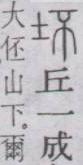 坏丘一成
大伾山下。爾